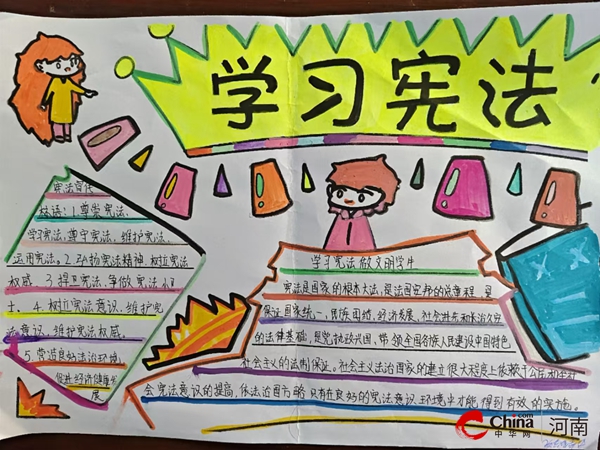 学习宪法
宪法宣传
标语:1.尊崇宪法、
学习宪法、遵守宪法、维护宪法、
运用宪法。2.弘扬宪法精神、树立宪法
权威 3.捍卫宪法、争做宪法卫
士、4.树立宪法意识、维护宪
法意识、维护宪法权威、
5.营造良好法治环境、
促进经济健康发
展
学习宪法 做文明学生
宪法是国家的根本大法,是治国安邦的总章程,是
保证国家统一、民族团结、经济发展、社会进步和长治久安
的法律基础,是党执政兴国、带领全国各族人民建设中国特色
社会主义的法制保证。社会主义法治国家的建立很大程度上依赖于公民和
会宪法意识的提高,依法治国方略只有在良好的宪法意识环境中才能得到有效的实施。
China.com
中华网
河南